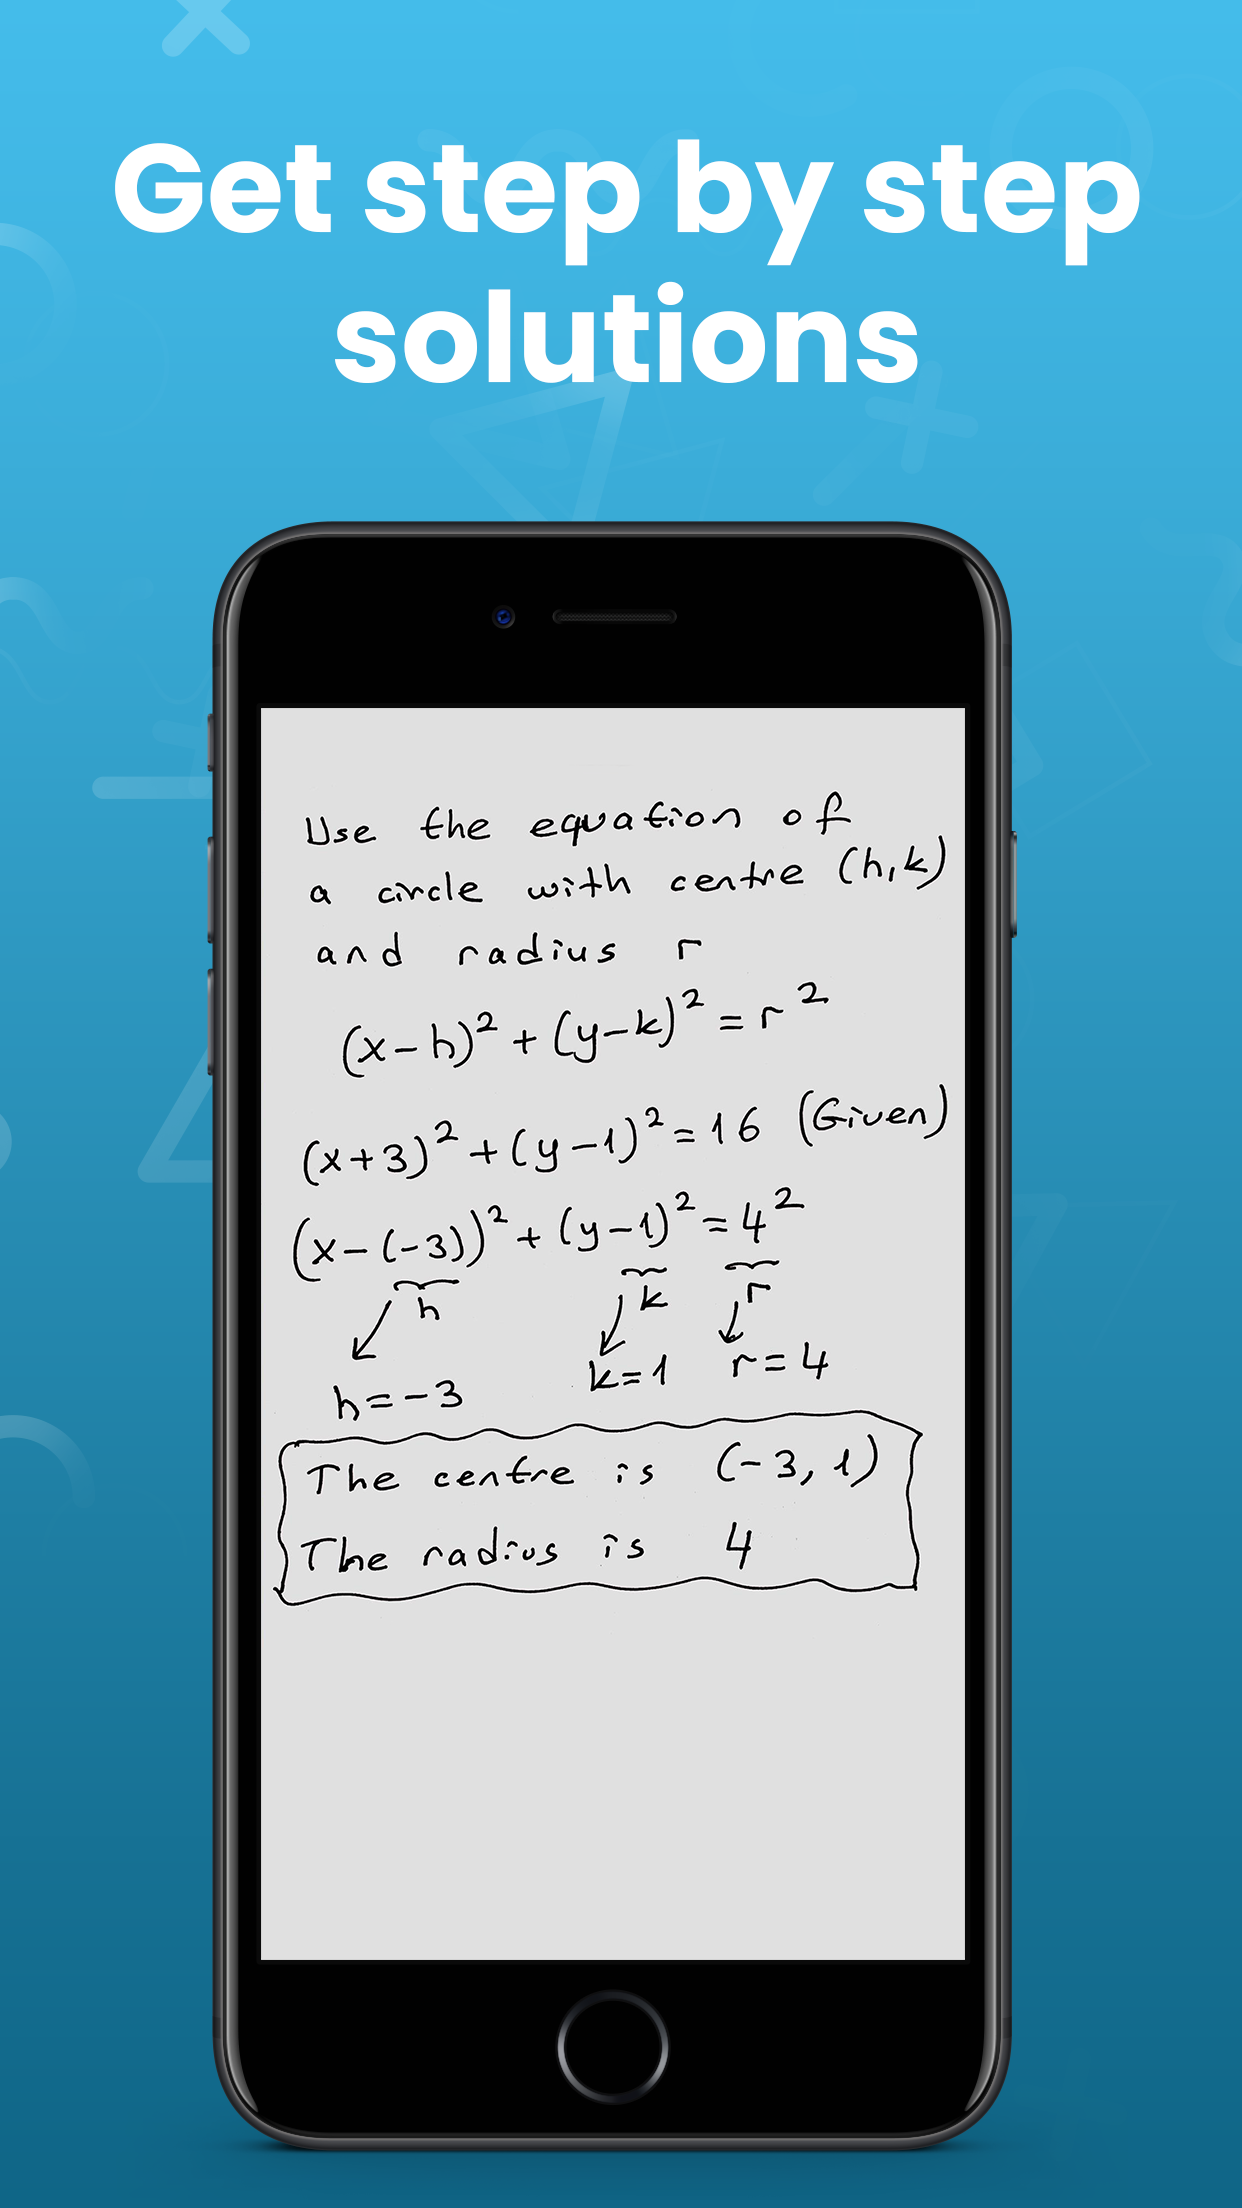 Get step by step
solutions
Use the equation of
a circle with centre (h,k)
and radius r
(x-h)² + (y-k)² = r²
(x+3)² + (y-1)² = 16 (Given)
(x-(-3))² + (y-1)² = 4²
h k r
h = -3 k = 1 r = 4
The centre is (-3, 1)
The radius is 4